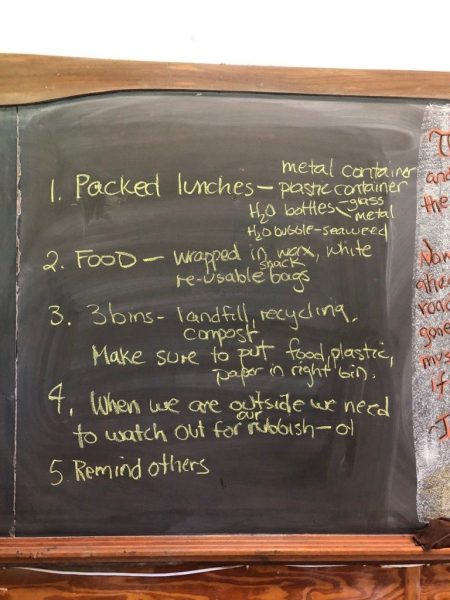 metal container
1. Packed lunches - plastic container
H2O bottles < glass
metal
H2O bubble - seaweed
2. FOOD - wrapped in wax, white
snack
re-usable bags
3. 3 bins - landfill, recycling,
compost
Make sure to put food, plastic,
paper in right bin.
4. When we are outside we need
our
to watch out for rubbish - ol
5 Remind others
and
the
Now